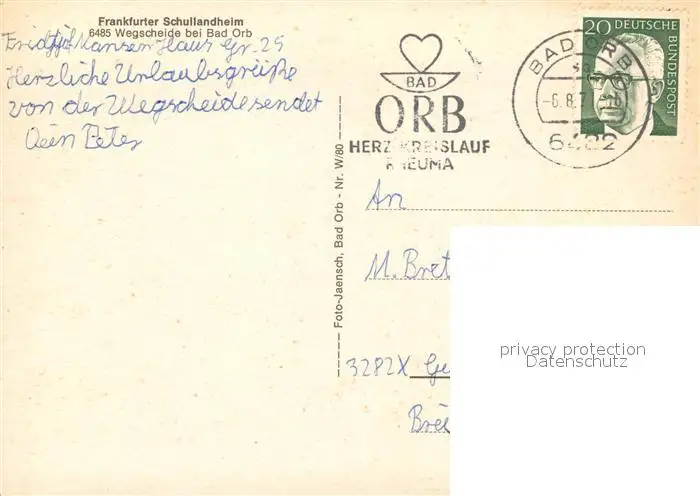 Frankfurter Schullandheim
6485 Wegscheide bei Bad Orb
Fridtjof Nansen Haus Gr. 25
Herzliche Urlaubsgrüße
von der Wegscheide sendet
Dein Peter
Foto-Jaensch, Bad Orb - Nr. W/80
BAD
ORB
HERZ KREISLAUF
RHEUMA
BAD ORB
-6.8.7
6482
20 DEUTSCHE
BUNDESPOST
An
M. Bret
3282X Ge
privacy protection
Datenschutz